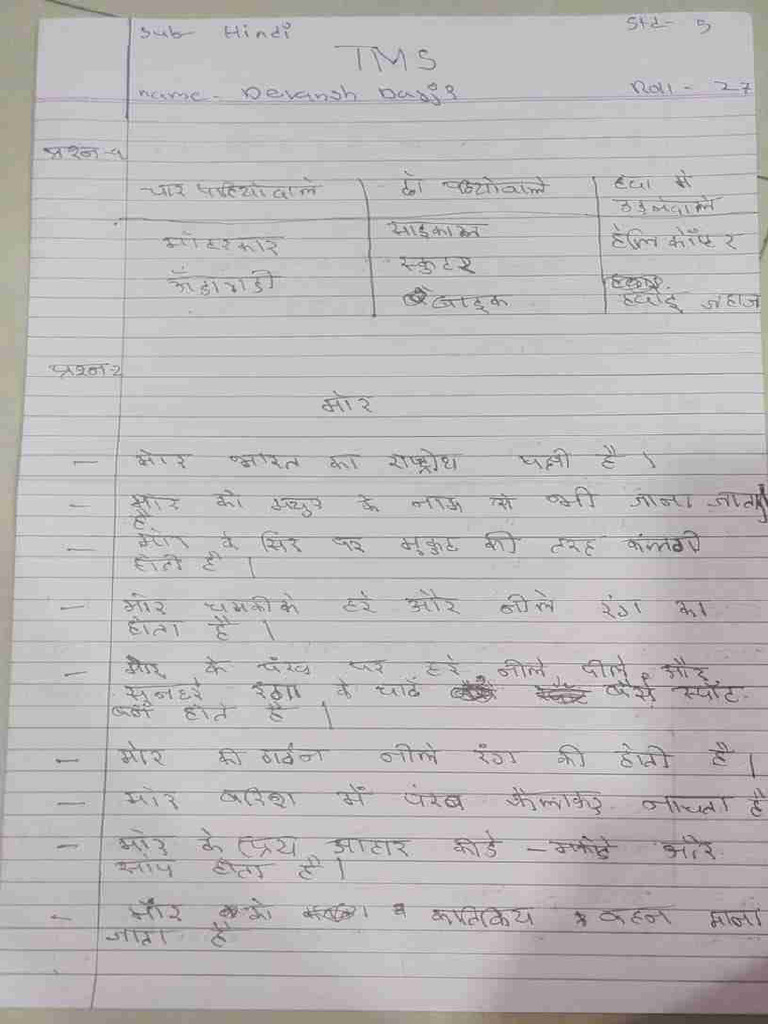 Sub- Hindi Std- 5
TMS
name- Devansh Darji Roll - 27
प्रश्न-१
चार पहियोवाले दो पहियोवाले हवा मे
उड़नेवाले
मोटरकार साइकाल हेलिकॉप्टर
स्कुटर
बाइक हवाई जहाज
प्रश्न-२
मोर
- मोर भारत का राष्ट्रीय पक्षी है ।
- मोर को मयुर के नाम से भी जाना जाता
है
- मोर के सिर पर मुकुट की तरह कलगी
होती है ।
- मोर चमकीके हरे और नीले रंग का
होता है ।
- मोर के पंख पर हरे नीले पीले और
सुनहरे रंग के चाँद जैसे स्पॉट
बने होते है ।
- मोर की गर्दन नीले रंग की होती है ।
- मोर बारिश में पंख फैलाकर नाचता है
- मोर के प्रिय आहार कीडे - मकोडे और
साँप होता है ।
- मोर को कार्तिकिय वहन माना
जाता है